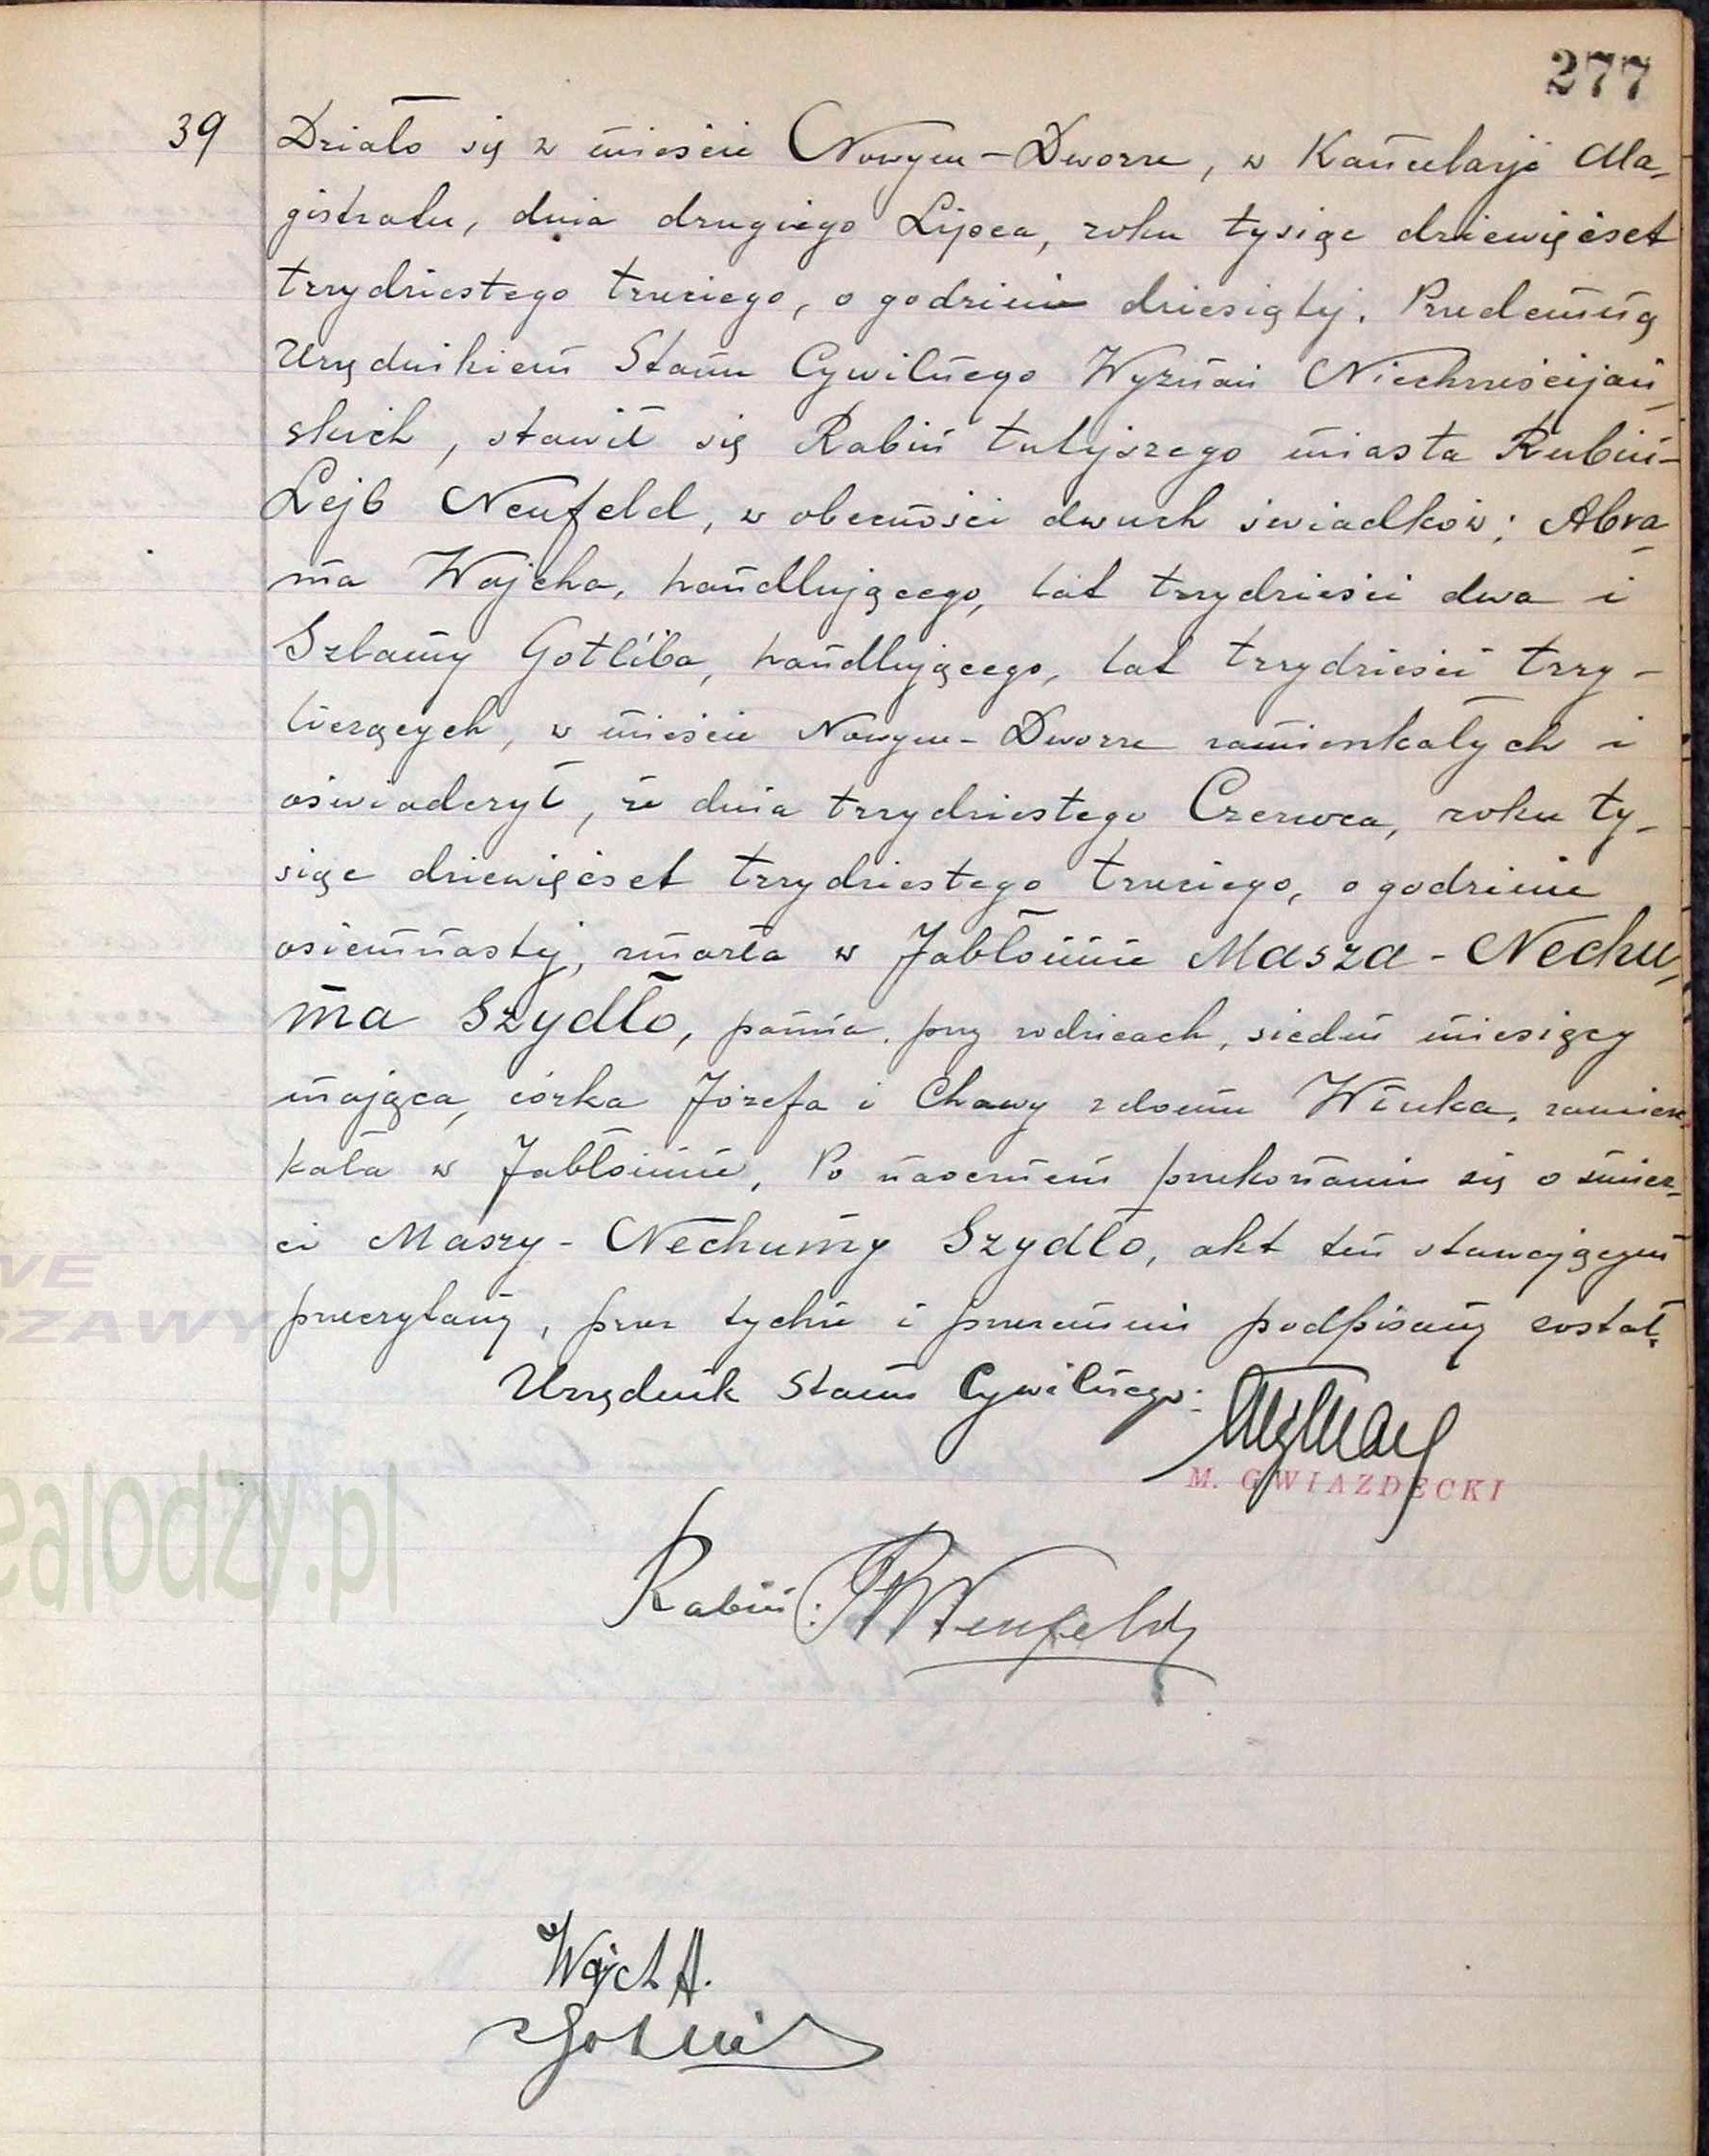 277
39 Działo się w mieście Nowym-Dworze, w Kancelarji Ma-
gistratu, dnia drugiego Lipca, roku tysiąc dziewięćset
trzydziestego trzeciego, o godzinie dziesiątej. Przedemną
Urzędnikiem Stanu Cywilnego Wyznań Niechrześcijań-
skich, stawił się Rabin tutejszego miasta Rubin-
Lejb Neufeld, w obecności dwuch świadków: Abra-
ma Wajcha, handlującego, lat trzydzieści dwa i
Szlamy Gotliba, handlującego, lat trzydzieści trzy -
liczących, w mieście Nowym-Dworze zamieszkałych i
oświadczył, że dnia trzydziestego Czerwca, roku ty-
siąc dziewięćset trzydziestego trzeciego, o godzinie
osiemnastej, zmarła w Jabłonnie Masza-Nechu-
ma Szydło, panna przy rodzicach, siedm miesięcy
mająca, córka Józefa i Chawy z domu Winka, zamiesz-
kała w Jabłonnie. Po naocznem przekonaniu się o śmier-
ci Maszy-Nechumy Szydło, akt ten stawającym
przeczytany, przez tychże i przezemnie podpisany został.
Urzędnik Stanu Cywilnego:
M. GWIAZDECKI
Rabin: R Neufeld
Wajch A.
Gotlib
WE
SZAWY
ealodzy.pl